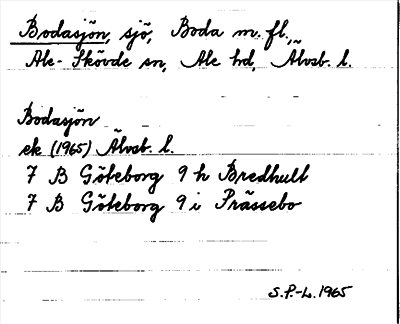 Bodasjön, sjö, Boda m. fl.,
Ale-Skövde sn, Ale hd, Älvsb. l.
Bodasjön
ek (1965) Älvsb. l.
7 B Göteborg 9 h Bredhult
7 B Göteborg 9 i Prässebo
S.P.-L. 1965